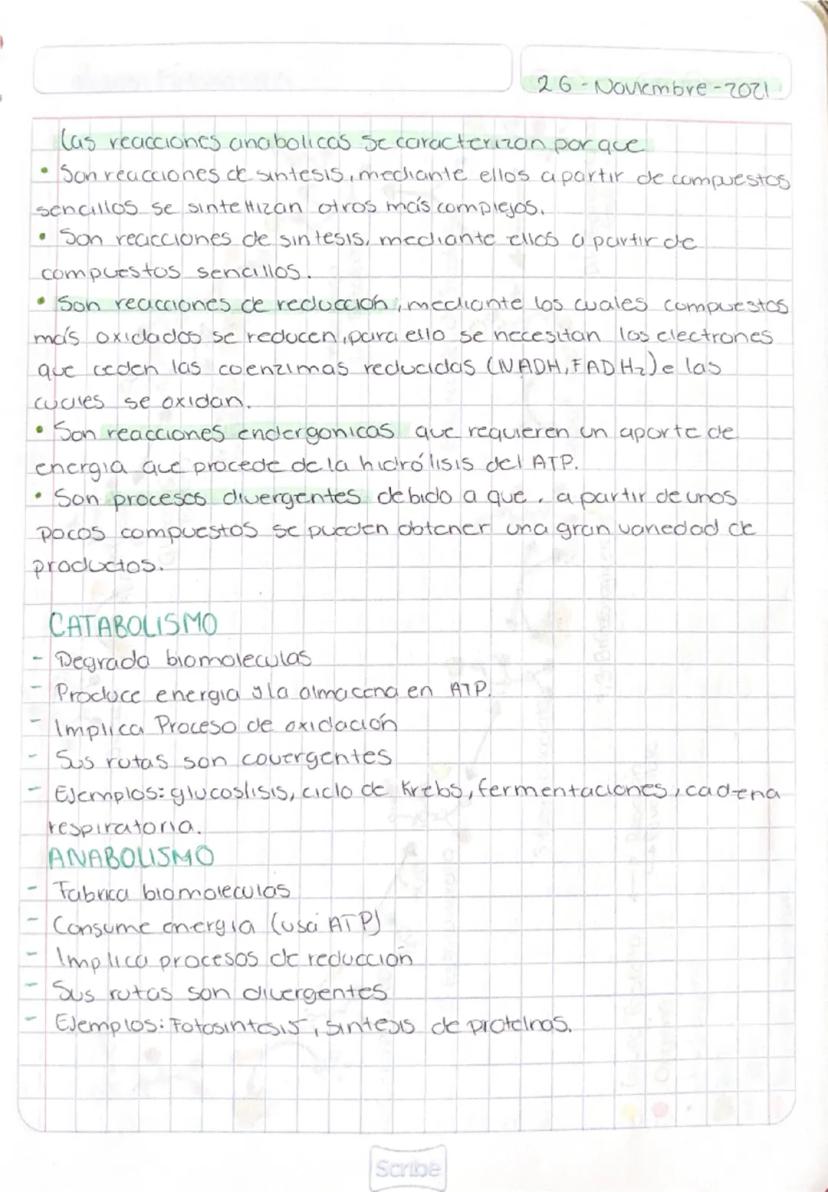 26-Noviembre-2021
las reacciones anabolicas se caracterizan por que
• Son reacciones de sintesis, mediante ellos a partir de compuestos
sencillos se sintetizan otros más complejos.
• Son reacciones de sintesis, mediante ellos a partir de
compuestos sencillos.
• Son reacciones de reducción, mediante los cuales compuestos
más oxidados se reducen, para ello se necesitan los electrones
que ceden las coenzimas reducidas (NADH, FADH₂) e las
cuales se oxidan.
• Son reacciones endergonicas que requieren un aporte de
energia que procede de la hidrólisis del ATP.
• Son procesos divergentes debido a que, a partir de unos
pocos compuestos se pueden obtener una gran variedad de
productos.
CATABOLISMO
- Degrada biomoleculas
- Produce energia y la almacena en ATP.
- Implica Proceso de oxidación
- Sus rutas son covergentes
- Ejemplos: glucoslisis, ciclo de Krebs, fermentaciones, cadena
respiratoria.
ANABOLISMO
- Fabrica biomoleculas
- Consume energia (usa ATP)
- Implica procesos de reducción
- Sus rutas son divergentes
- Ejemplos: Fotosintesis, sintesis de proteinas.
Scribe